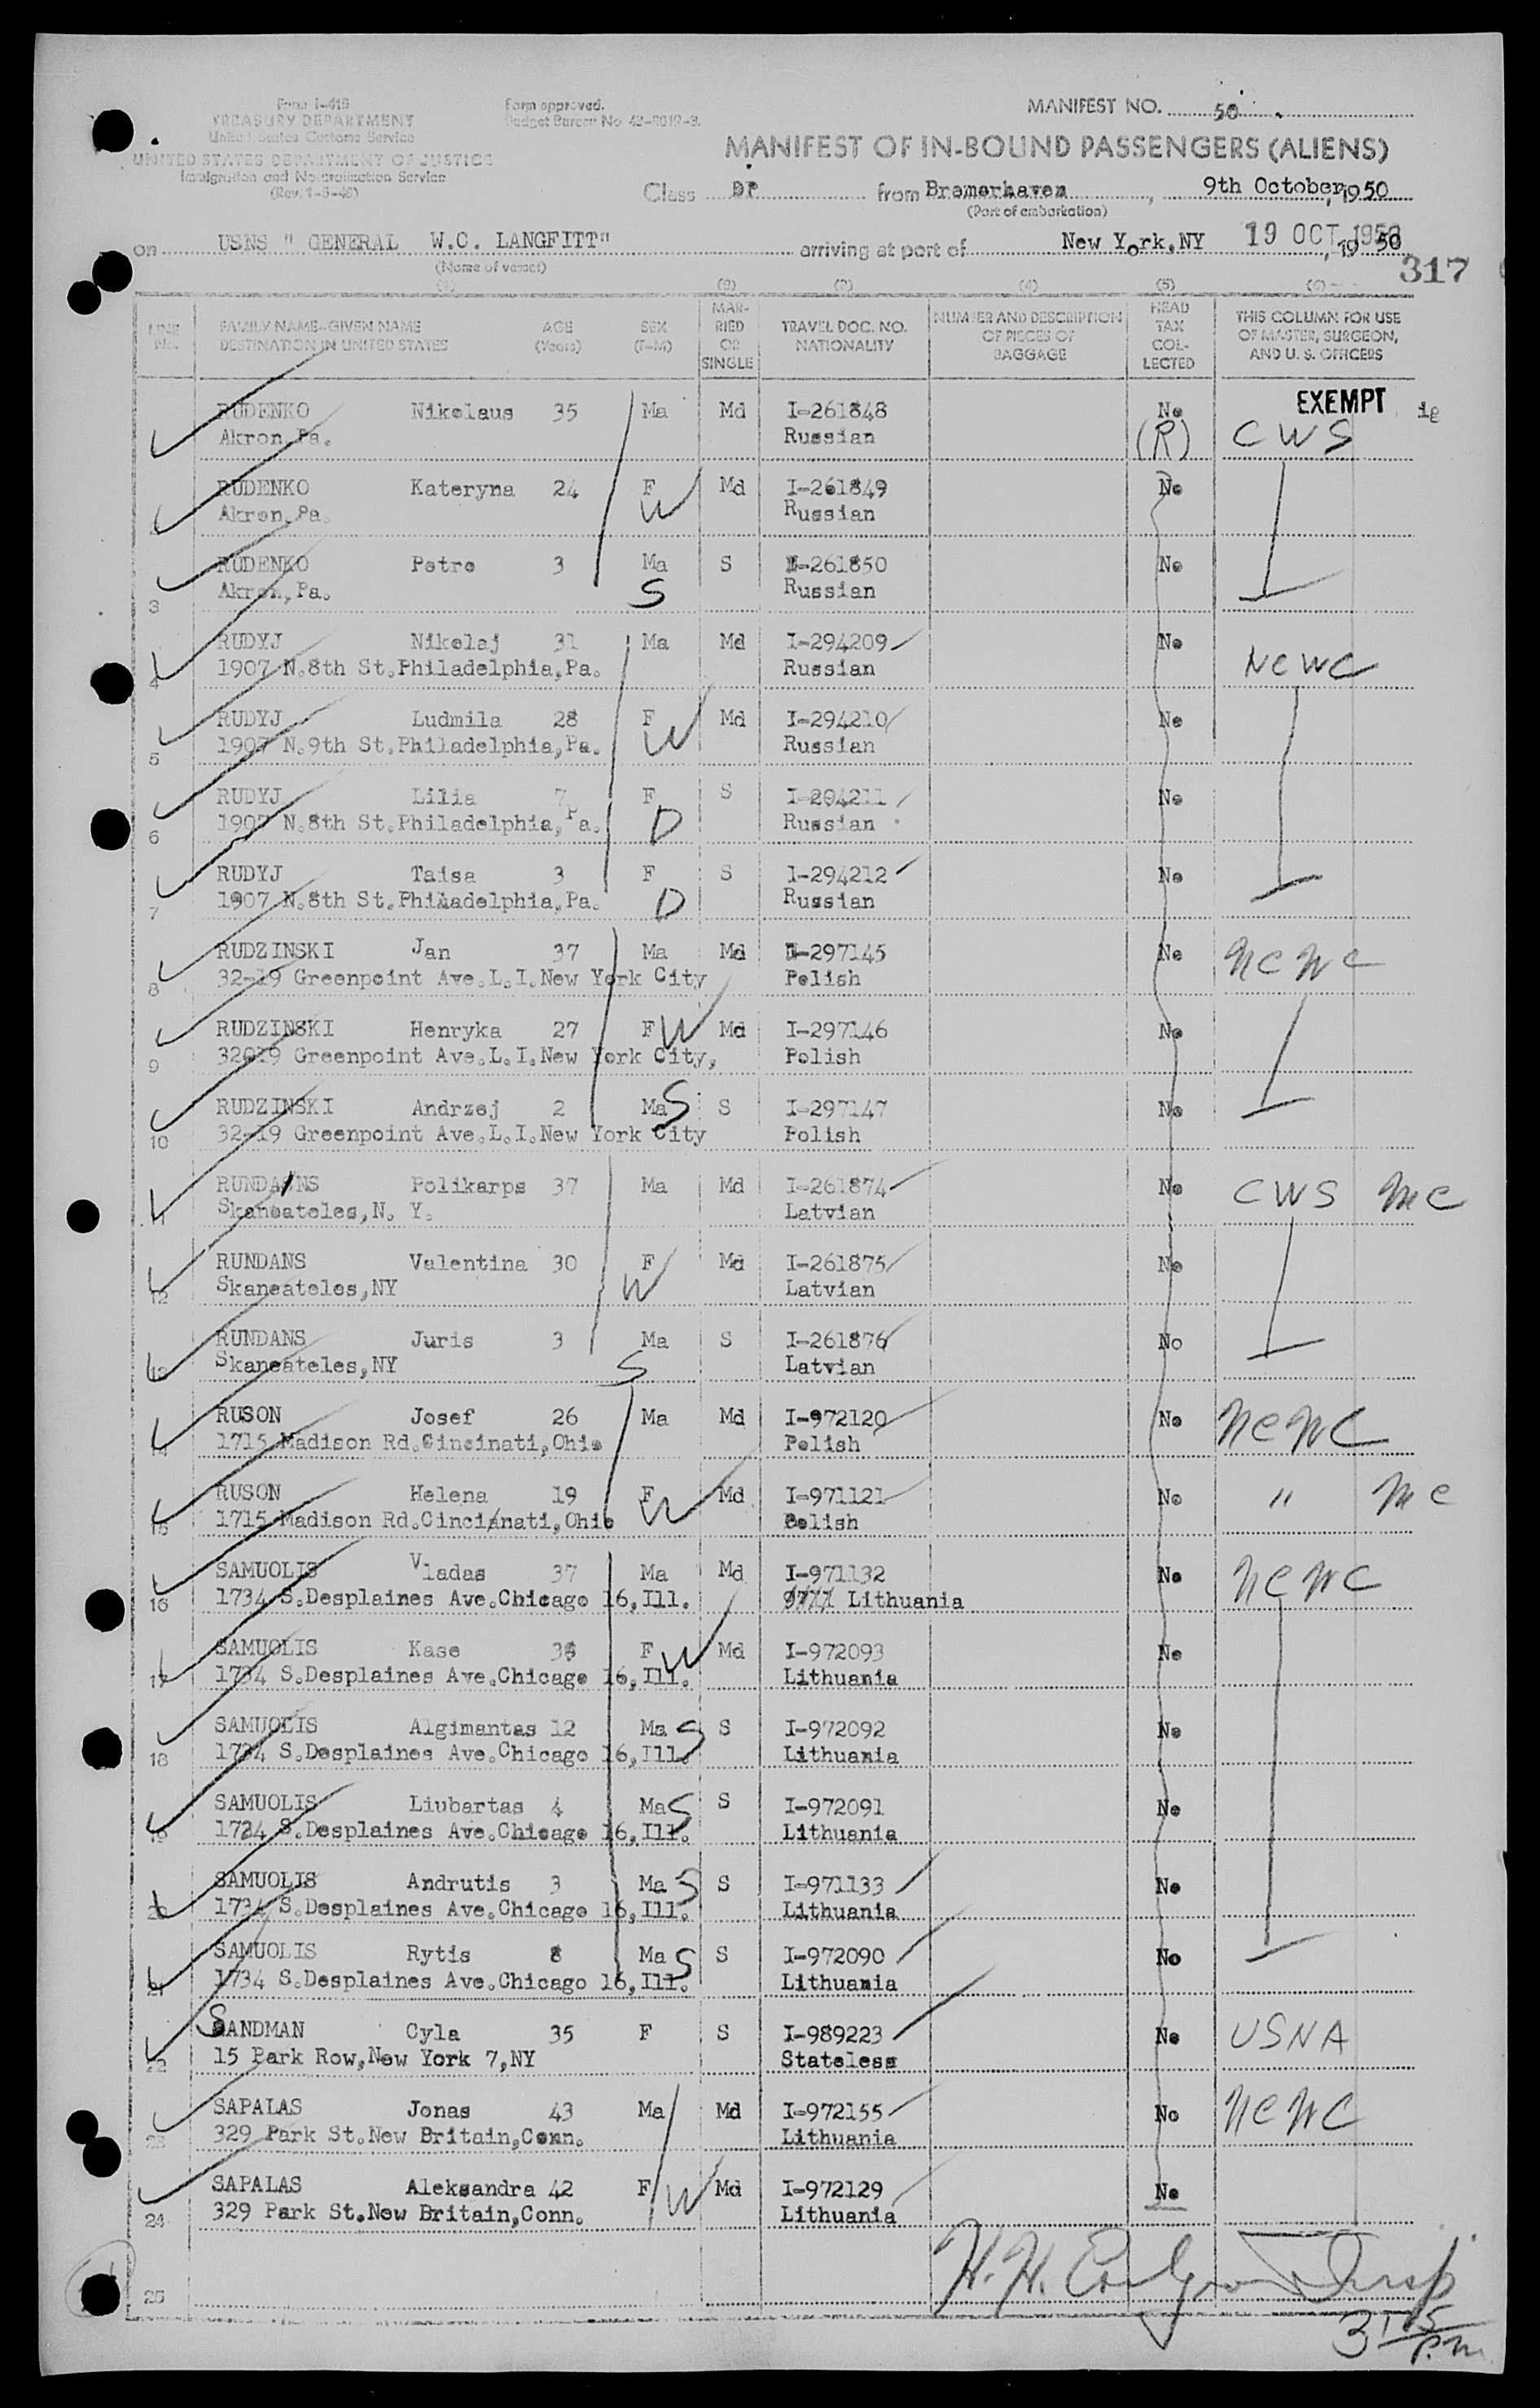 Form I-418
TREASURY DEPARTMENT
United States Customs Service
UNITED STATES DEPARTMENT OF JUSTICE
Immigration and Naturalization Service
(Rev. 1-5-48)
Form approved.
Budget Bureau No. 43-R019-3.
MANIFEST NO. 50
MANIFEST OF IN-BOUND PASSENGERS (ALIENS)
Class DP from Bremerhaven, 9th October, 1950
(Port of embarkation)
on USNS " GENERAL W.C. LANGFITT" arriving at port of New York,NY 19 OCT 1950, 19 50
(Name of vessel)
317
(1) (2) (3) (4) (5) (6)
LINE No. FAMILY NAME-GIVEN NAME DESTINATION IN UNITED STATES AGE (Years) SEX (F-M) MARRIED OR SINGLE TRAVEL DOC. NO. NATIONALITY NUMBER AND DESCRIPTION OF PIECES OF BAGGAGE HEAD TAX COLLECTED THIS COLUMN FOR USE OF MASTER, SURGEON, AND U. S. OFFICERS
RUDENKO Nikolaus 35 Ma Md I-261848 No EXEMPT ig
Akron,Pa. Russian (R) CWS
RUDENKO Kateryna 24 F Md I-261849 No
Akron,Pa. W Russian
RUDENKO Petro 3 Ma S I-261850 No
3 Akron,Pa. S Russian
RUDYJ Nikolaj 31 Ma Md I-294209 No
4 1907 N.8th St.Philadelphia,Pa. Russian NCWC
RUDYJ Ludmila 28 F Md I-294210 No
5 1907 N.9th St.Philadelphia,Pa. W Russian
RUDYJ Lilia 7 F S I-294211 No
6 1907 N.8th St.Philadelphia,Pa. D Russian
RUDYJ Taisa 3 F S I-294212 No
7 1907 N.8th St.Philadelphia,Pa. D Russian
RUDZINSKI Jan 37 Ma Md I-297145 No NCWC
8 32-19 Greenpoint Ave.L.I.New York City Polish
RUDZINSKI Henryka 27 F W Md I-297146 No
9 32019 Greenpoint Ave.L.I.New York City, Polish
RUDZINSKI Andrzej 2 Ma S S I-297147 No
10 32-19 Greenpoint Ave.L.I.New York City Polish
RUNDANS Polikarps 37 Ma Md I-261874 No CWS MC
11 Skaneateles,N. Y. Latvian
RUNDANS Valentina 30 F Md I-261875 No
12 Skaneateles,NY W Latvian
RUNDANS Juris 3 Ma S I-261876 No
13 Skaneateles,NY S Latvian
RUSON Josef 26 Ma Md I-972120 No NCWC
14 1715 Madison Rd.Cincinati,Ohio Polish
RUSON Helena 19 F W Md I-971121 No " MC
15 1715 Madison Rd.Cincinnati,Ohio Polish
SAMUOLIS Vladas 37 Ma Md I-971132 No NCWC
16 1734 S.Desplaines Ave.Chicago 16,Ill. Lithuania
SAMUOLIS Kase F W Md I-972093 No
17 1734 S.Desplaines Ave.Chicago 16,Ill. Lithuania
SAMUOLIS Algimantas 12 Ma S S I-972092 No
18 1734 S.Desplaines Ave.Chicago 16,Ill. Lithuania
SAMUOLIS Liubartas 4 Ma S S I-972091 No
19 1734 S.Desplaines Ave.Chicago 16,Ill. Lithuania
SAMUOLIS Andrutis 3 Ma S S I-971133 No
20 1734 S.Desplaines Ave.Chicago 16,Ill. Lithuania
SAMUOLIS Rytis 8 Ma S S I-972090 No
21 1734 S.Desplaines Ave.Chicago 16,Ill. Lithuania
SANDMAN Cyla 35 F S I-989223 No USNA
22 15 Park Row,New York 7,NY Stateless
SAPALAS Jonas 43 Ma Md I-972155 No NCWC
23 329 Park St.New Britain,Conn. Lithuania
SAPALAS Aleksandra 42 F W Md I-972129 No
24 329 Park St.New Britain,Conn. Lithuania
25 H.H. Insp
3 15 P.m.